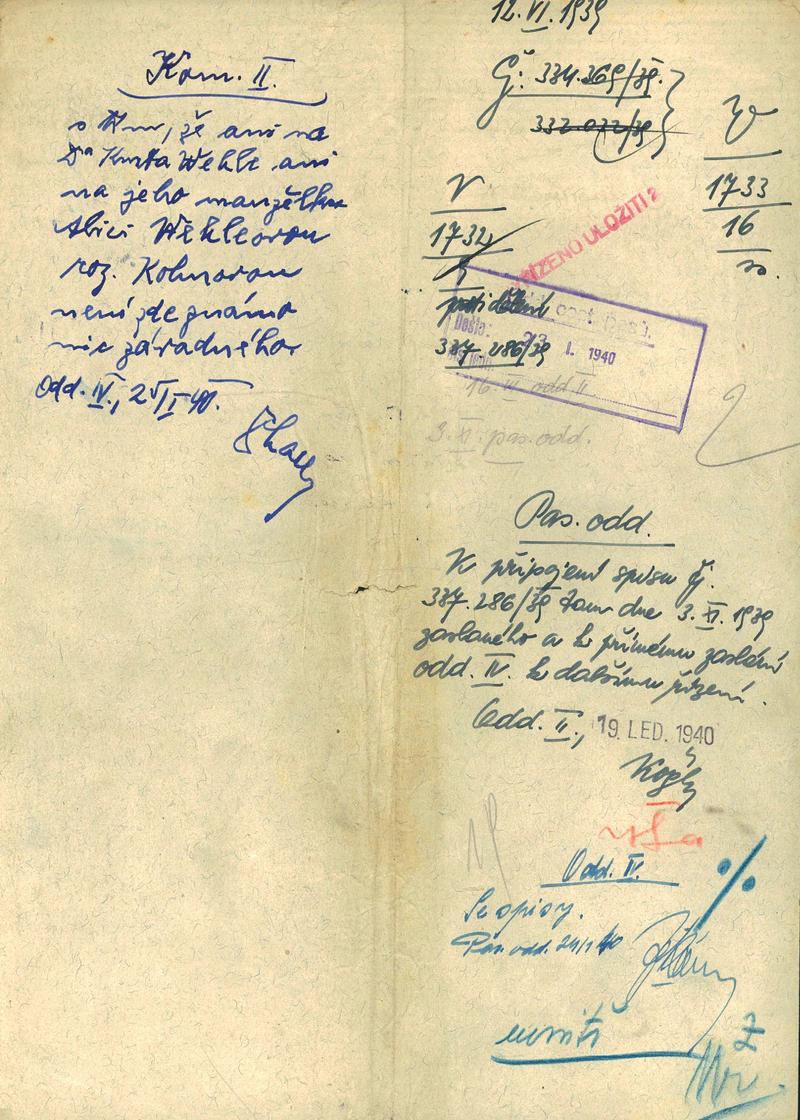 Kom. II.
s tím, že ani na
Dra Kurta Wehle ani
na jeho manželku
Alici Wehleovou
roz. Kohnovou
není zde známo
nic závadného.
Odd. IV., 25/I 40.
12. VI. 1939
Čj: 334.369/39.
332.032/39
V
1733
16
V
1732
ŘÍZENO ULOŽITI
Došlo:
23 I. 1940
337 286/39
16. VI odd II.
3. XI. pas. odd.
Pas. odd.
K připojení spisu čj.
337.286/39 tam dne 3. XI. 1939
zaslaného a k přímému zaslání
odd. IV. k dalšímu řízení.
Odd. II., 19. LED. 1940
Odd. IV.
Se spisy.
Pas. odd. 24/1 40
%